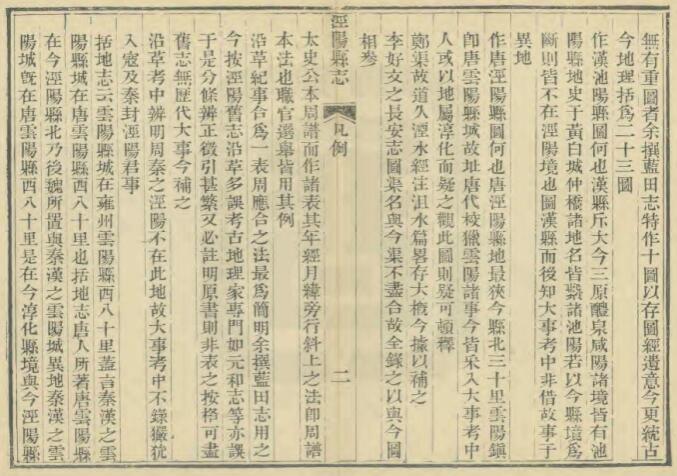 無有重圖者余撰藍田志特作十圖以存圖經遺意今更統古
今地理括爲二十三圖
作漢池陽縣圖何也漢縣斥大今三原醴泉咸陽諸境皆有池
陽縣地史于黃白城仲橋諸地名皆繫諸池陽若以今縣境爲
斷則皆不在涇陽境也圖漢縣而後知大事考中非借故事于
異地
作唐涇陽縣圖何也唐涇陽縣地最狹今縣北三十里雲陽鎮
卽唐雲陽縣城故址唐代校獵雲陽諸事今皆采入大事考中
人或以地屬淳化而疑之觀此圖則疑可頓釋
鄭渠故道久湮水經注沮水篇畧存大槪今據以補之
李好文之長安志圖渠名與今渠不盡合故全錄之以與今圖
相參
涇陽縣志
凡例
二
太史公本周譜而作諸表其年經月緯旁行斜上之法卽周譜
本法也職官選舉皆用其例
沿革紀事合爲一表周應合之法最爲簡明余撰藍田志用之
今按涇陽舊志沿革多誤考古地理家專門如元和志等亦誤
于是分條辨正徵引甚繁又必註明原書則非表之按格可盡
舊志無歷代大事今補之
沿革考中辨明周秦之涇陽不在此地故大事考中不錄玁狁
入寇及秦封涇陽君事
括地志云雲陽縣城在雍州雲陽縣西八十里蓋言秦漢之雲
陽縣城在唐雲陽縣西八十里也括地志唐人所著唐雲陽縣
在今涇陽縣北乃後魏所置與秦漢之雲陽城異地秦漢之雲
陽城旣在唐雲陽縣西八十里是在今淳化縣境與今涇陽縣